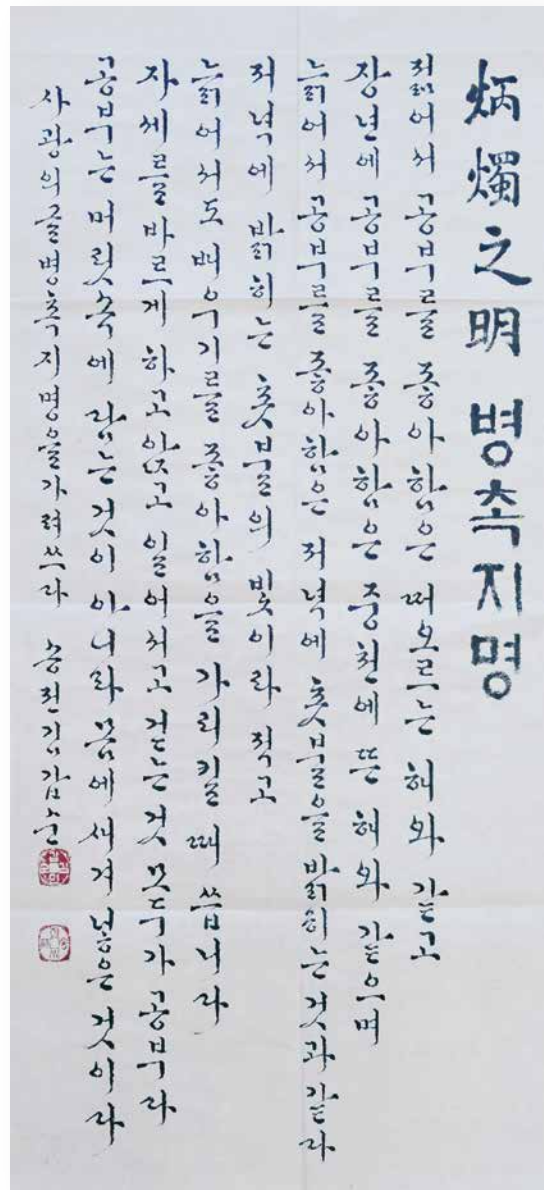 炳燭之明 병촉지명
젊어서 공부를 좋아함은 떠오르는 해와 같고
장년에 공부를 좋아함은 중천에 뜬 해와 같으며
늙어서 공부를 좋아함은 저녁에 촛불을 밝히는 것과 같다
저녁에 밝히는 촛불의 빛이라 적고
늙어서도 배우기를 좋아함을 가리킬 때 씁니다
자세를 바르게 하고 앉고 일어서고 걷는 것 모두가 공부라
공부는 머릿속에 담는 것이 아니라 몸에 새겨 넣은 것이라
사광의 글 병촉지명을 가려 쓰다 송전 김갑순